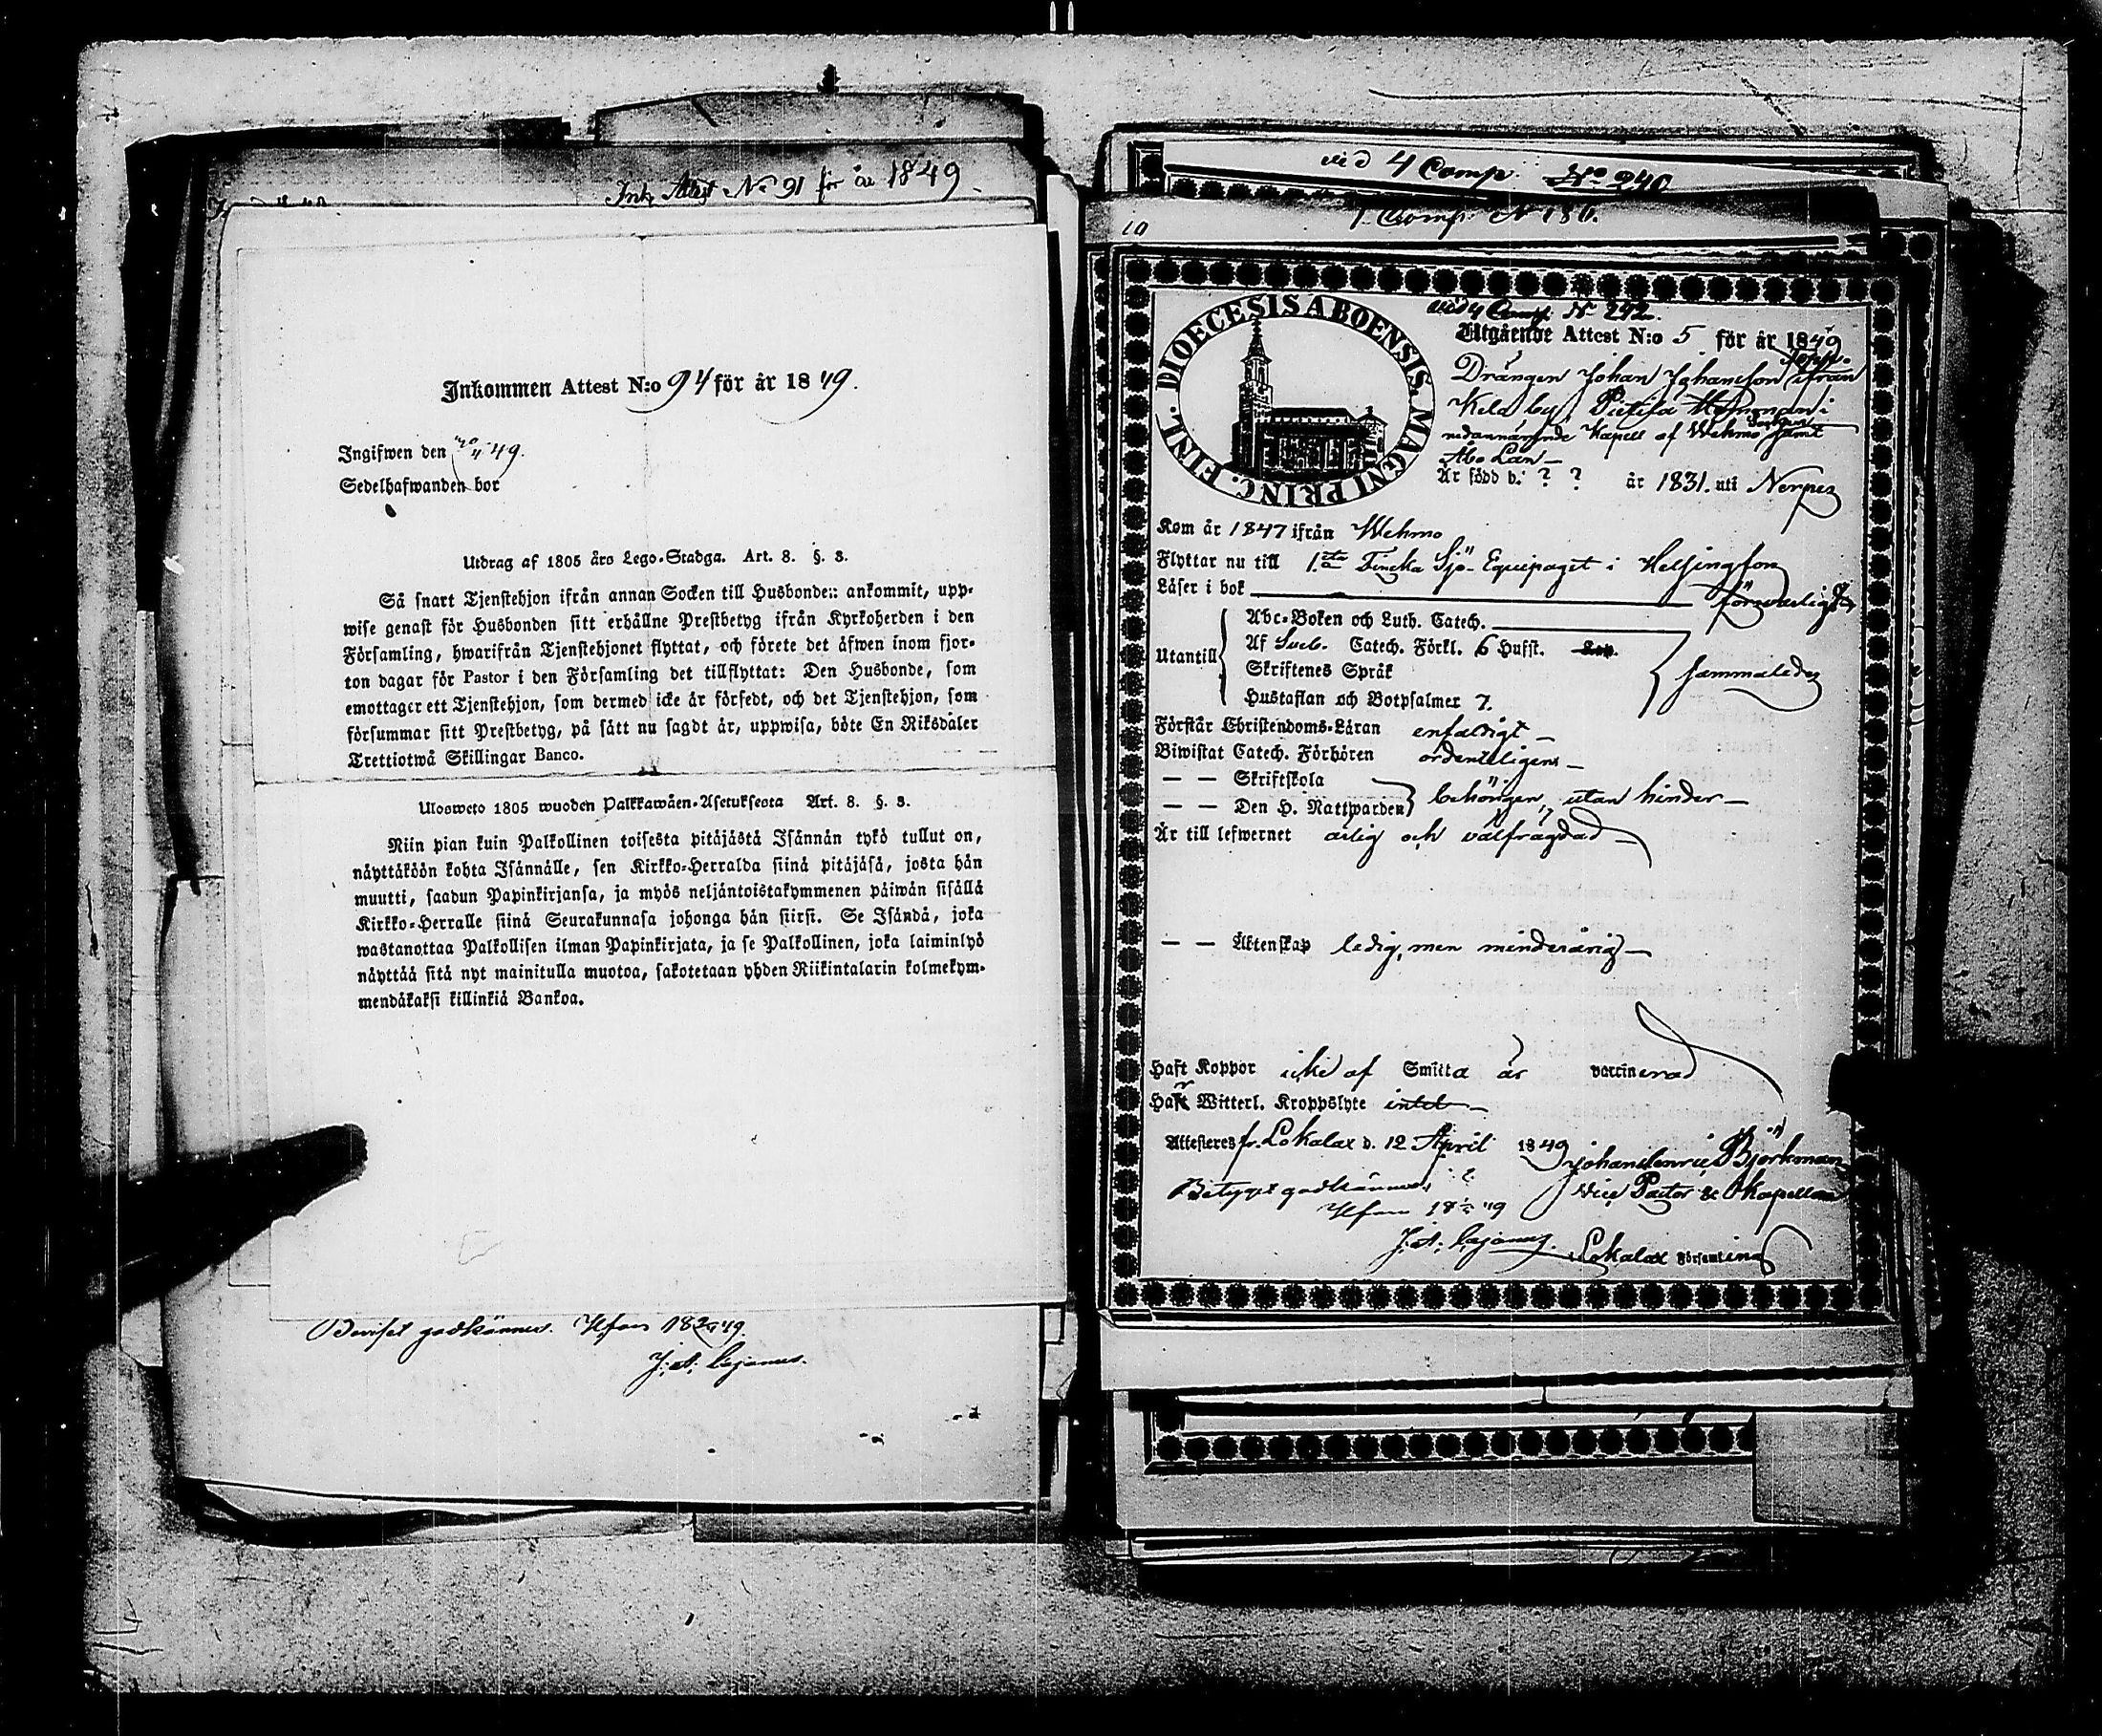 Ink. Attest No 91 för år 1849.
Inkommen Attest N:o 94 för år 1849.
Ingifwen den 49.
Sedelhafwanden bor
Utdrag af 1805 års Lego-Stadga. Art. 8. §. 3.
Så snart Tjenstehjon ifrån annan Socken till Husbonde:: ankommit, upp-
wise genast för Husbonden sitt erhållne Prestbetyg ifrån Kyrkoherden i den
Församling, hwarifrån Tjenstehjonet flyttat, och förete det äfwen inom fjor-
ton dagar för Pastor i den Församling det tillflyttat: Den Husbonde, som
emottager ett Tjenstehjon, som dermed icke är försedt, och det Tjenstehjon, som
försummar sitt Prestbetyg, på sätt nu sagdt är, uppwisa, böte En Riksdaler
Trettiotwå Skillingar Banco.
Uloswеto 1805 wuoden Palkkawäen-Asetuksesta Art. 8. §. 3.
Niin pian kuin Palkollinen toisesta pitäjästä Isännän tykö tullut on,
näyttäköön kohta Isännälle, sen Kirkko-Herralda siinä pitäjäsä, josta hän
muutti, saadun Papinkirjansa, ja myös neljäntoistakymmenen päiwän sisällä
Kirkko-Herralle siinä Seurakunnasa johonga hän siirsi. Se Isändä, joka
wastanottaa Palkollisen ilman Papinkirjata, ja se Palkollinen, joka laiminlyö
näyttää sitä nyt mainitulla muotoa, sakotetaan yhden Riikintalarin kolmekym-
mendäkaksi killinkiä Bankoa.
Beviset godkännes. Hfors
J. A. Cajanus.
vid 4 Comp. No 240
1 Comp. N 186.
10
DIOECESIS ABOENSIS. MAGNI PRINC. FINL.
vid 4 Comp. N 242.
Utgående Attest N:o 5 för år 1849
Drängen Johan Johansson ifrån
Kela by, i
nedannämde Kapell af Wehmo samt
Åbo Län
Är född d. ? ? år 1831. uti Nerpes
Kom år 1847 ifrån Wehmo
Flyttar nu till 1sta Finska Sjö-Equipaget i Helsingfors
Läser i bok försvarligt
Abc-Boken och Luth. Catech.
Utantill Af Sveb. Catech. Förkl. 6 Hufst.
Skriftenes Språk
sammaledes
Hustaflan och Botpsalmer 7.
Förstår Christendoms-Läran enfaldigt
Biwistat Catech. Förhören ordenteligen
— — Skriftskola
— — Den H. Nattwarden behörigen, utan hinder
Är till lefwernet ärlig och välfrägdad
— — Äktenskap ledig, men minderårig
Haft Koppor icke af Smitta är vaccinerad
Har Witterl. Kroppslyte intet
Attesteres fr. Lokalax d. 12 April 1849 Johan Henric Björkman
Betyget godkännes, Vice Pastor & Kapellan
Hfors
J. A. Cajanus. Lokalax Församling